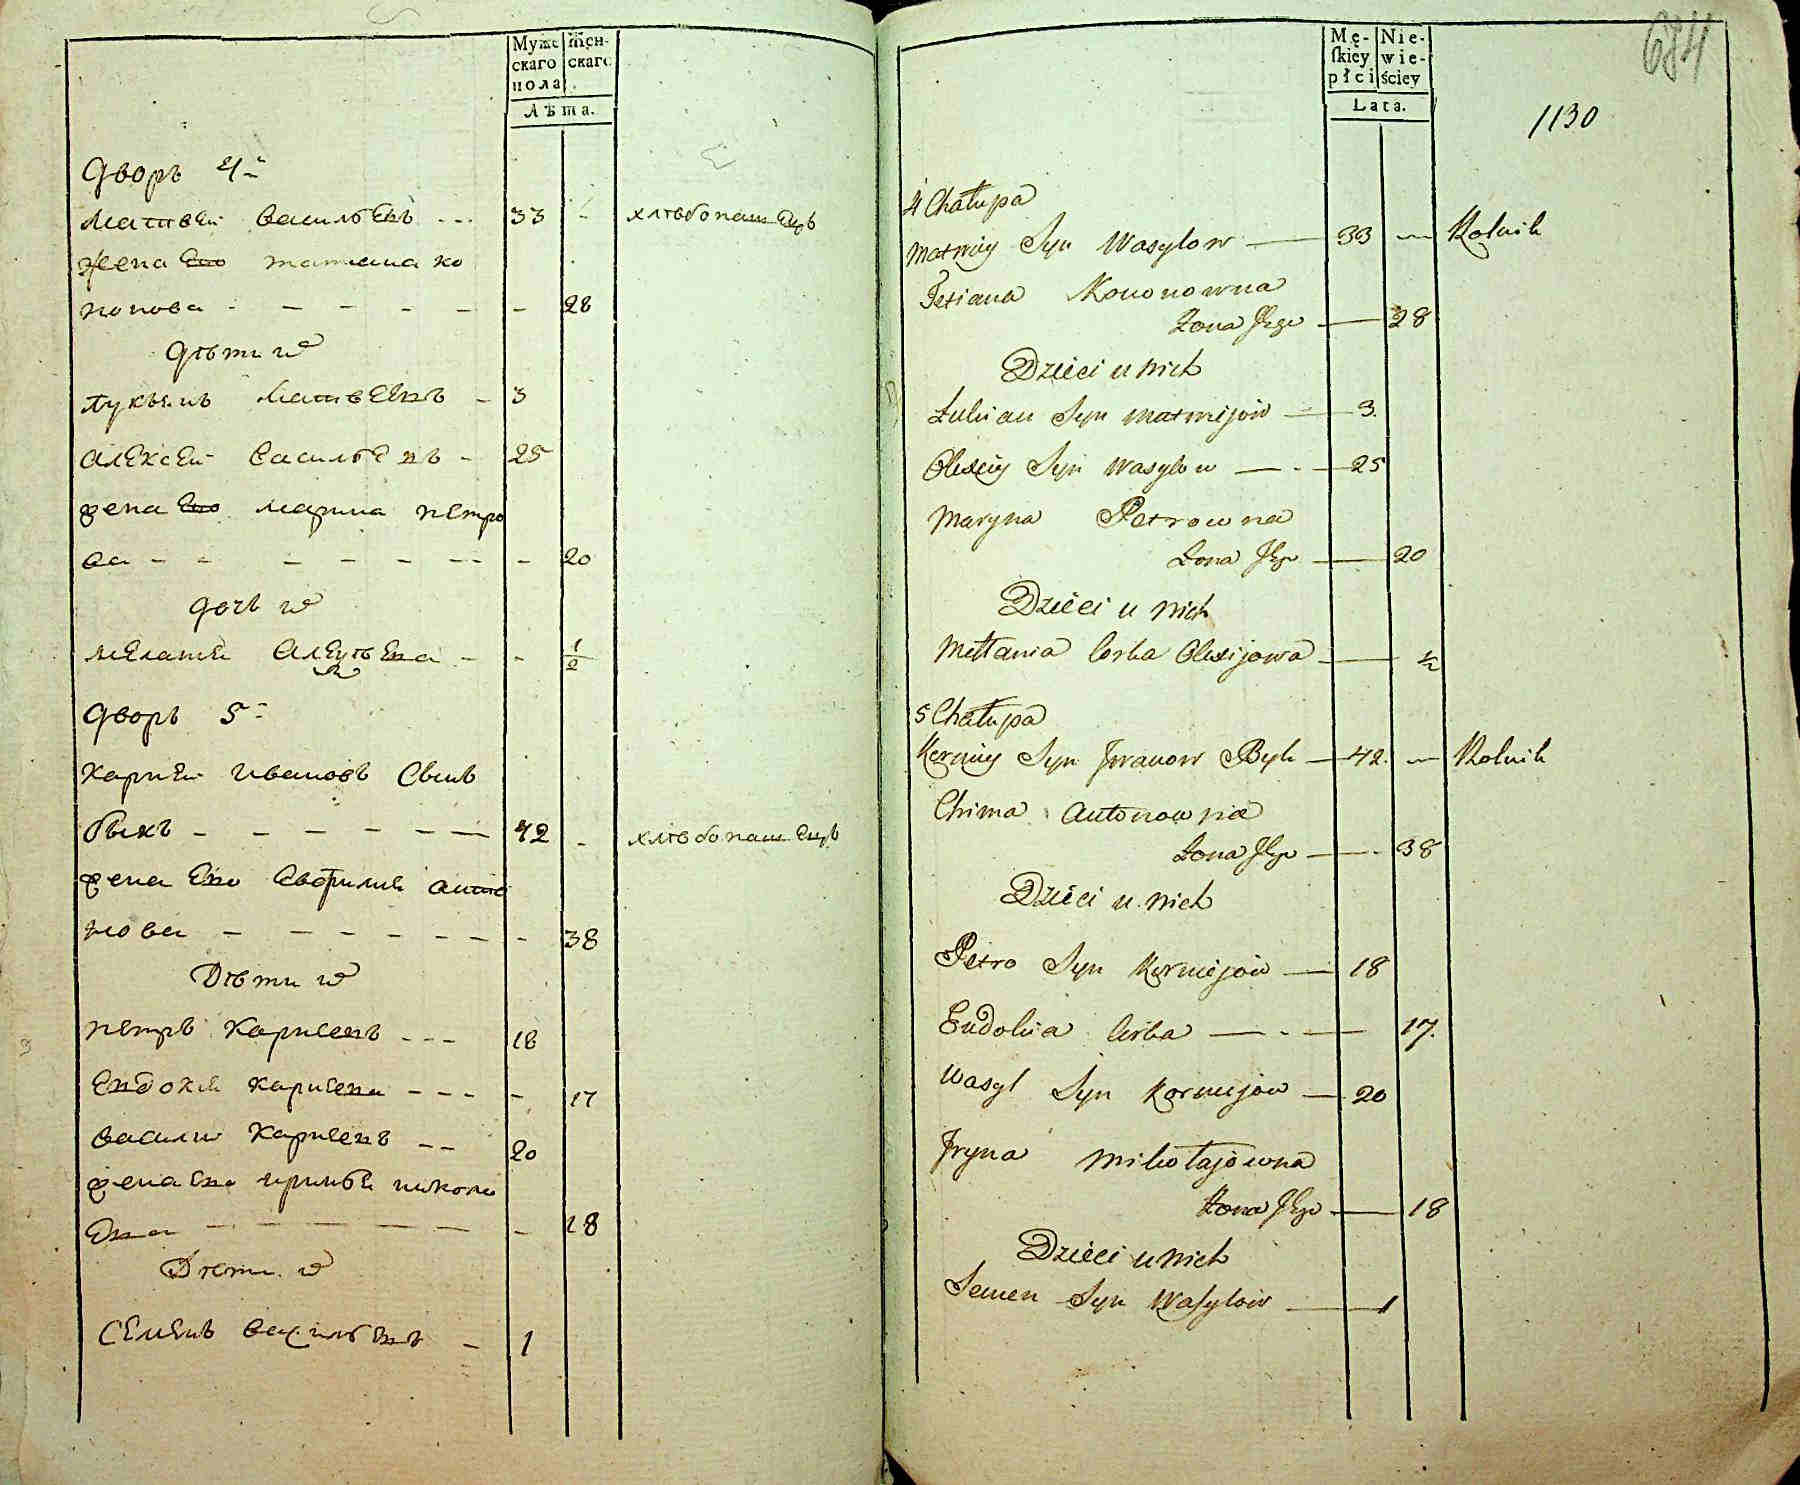 Муже
скаго
пола
Жен-
скаго
Лѣта.
Дворъ 4й
матвеи васильевъ - - - 33 - хлѣбопашецъ
жена ево татиана ко
нонова - - - - - - 28
дѣти их
лукьянъ матвеевъ - 3
алексеи васильевъ - 25
жена ево марина петро
ва - - - - - - - 20
дочь их
мелания алексѣева - - 1/2
Дворъ 5й
карнеи ивановъ сынъ
быкъ - - - - - - 42 - хлѣбопашецъ
жена ево анто
нова - - - - - - - 38
Дѣти их
петръ карнеевъ - - - 18
Евдокия карнеева - - - - 17
василии карнеевъ - - 20
жена ево никола
ева - - - - - - 18
Дѣти их
семенъ васильевъ - 1
Mę-
skiey
płci
Nie-
wie-
ściey
Lata.
684
1130
4 Chałupa
Matwiy Syn Wasylow — 33 — Rolnik
Tetiana Kononowna
Żona Jego — 28
Dzieci u nich
Łukian Syn Matwijów — 3.
Olexiy Syn Wasylow — - — 25
Maryna Petrowna
Żona Jego — 20
Dzieci u nich
Mełania Corka Olexijowa — 1/2
5 Chałupa
Korniy Syn Jwanow Byk — 42. — Rolnik
Chima Antonowna
Żona Jego — - 38
Dzieci u nich
Petro Syn Kornijów — 18
Eudokia Corka — - — 17.
Wasyl Syn Kornijow — 20
Jryna Mikołajowna
Żona Jego — 18
Dzieci u nich
Semen Syn Wasylów — 1